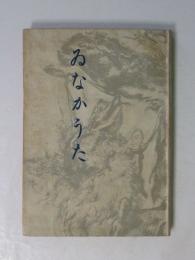 ゐなかうた